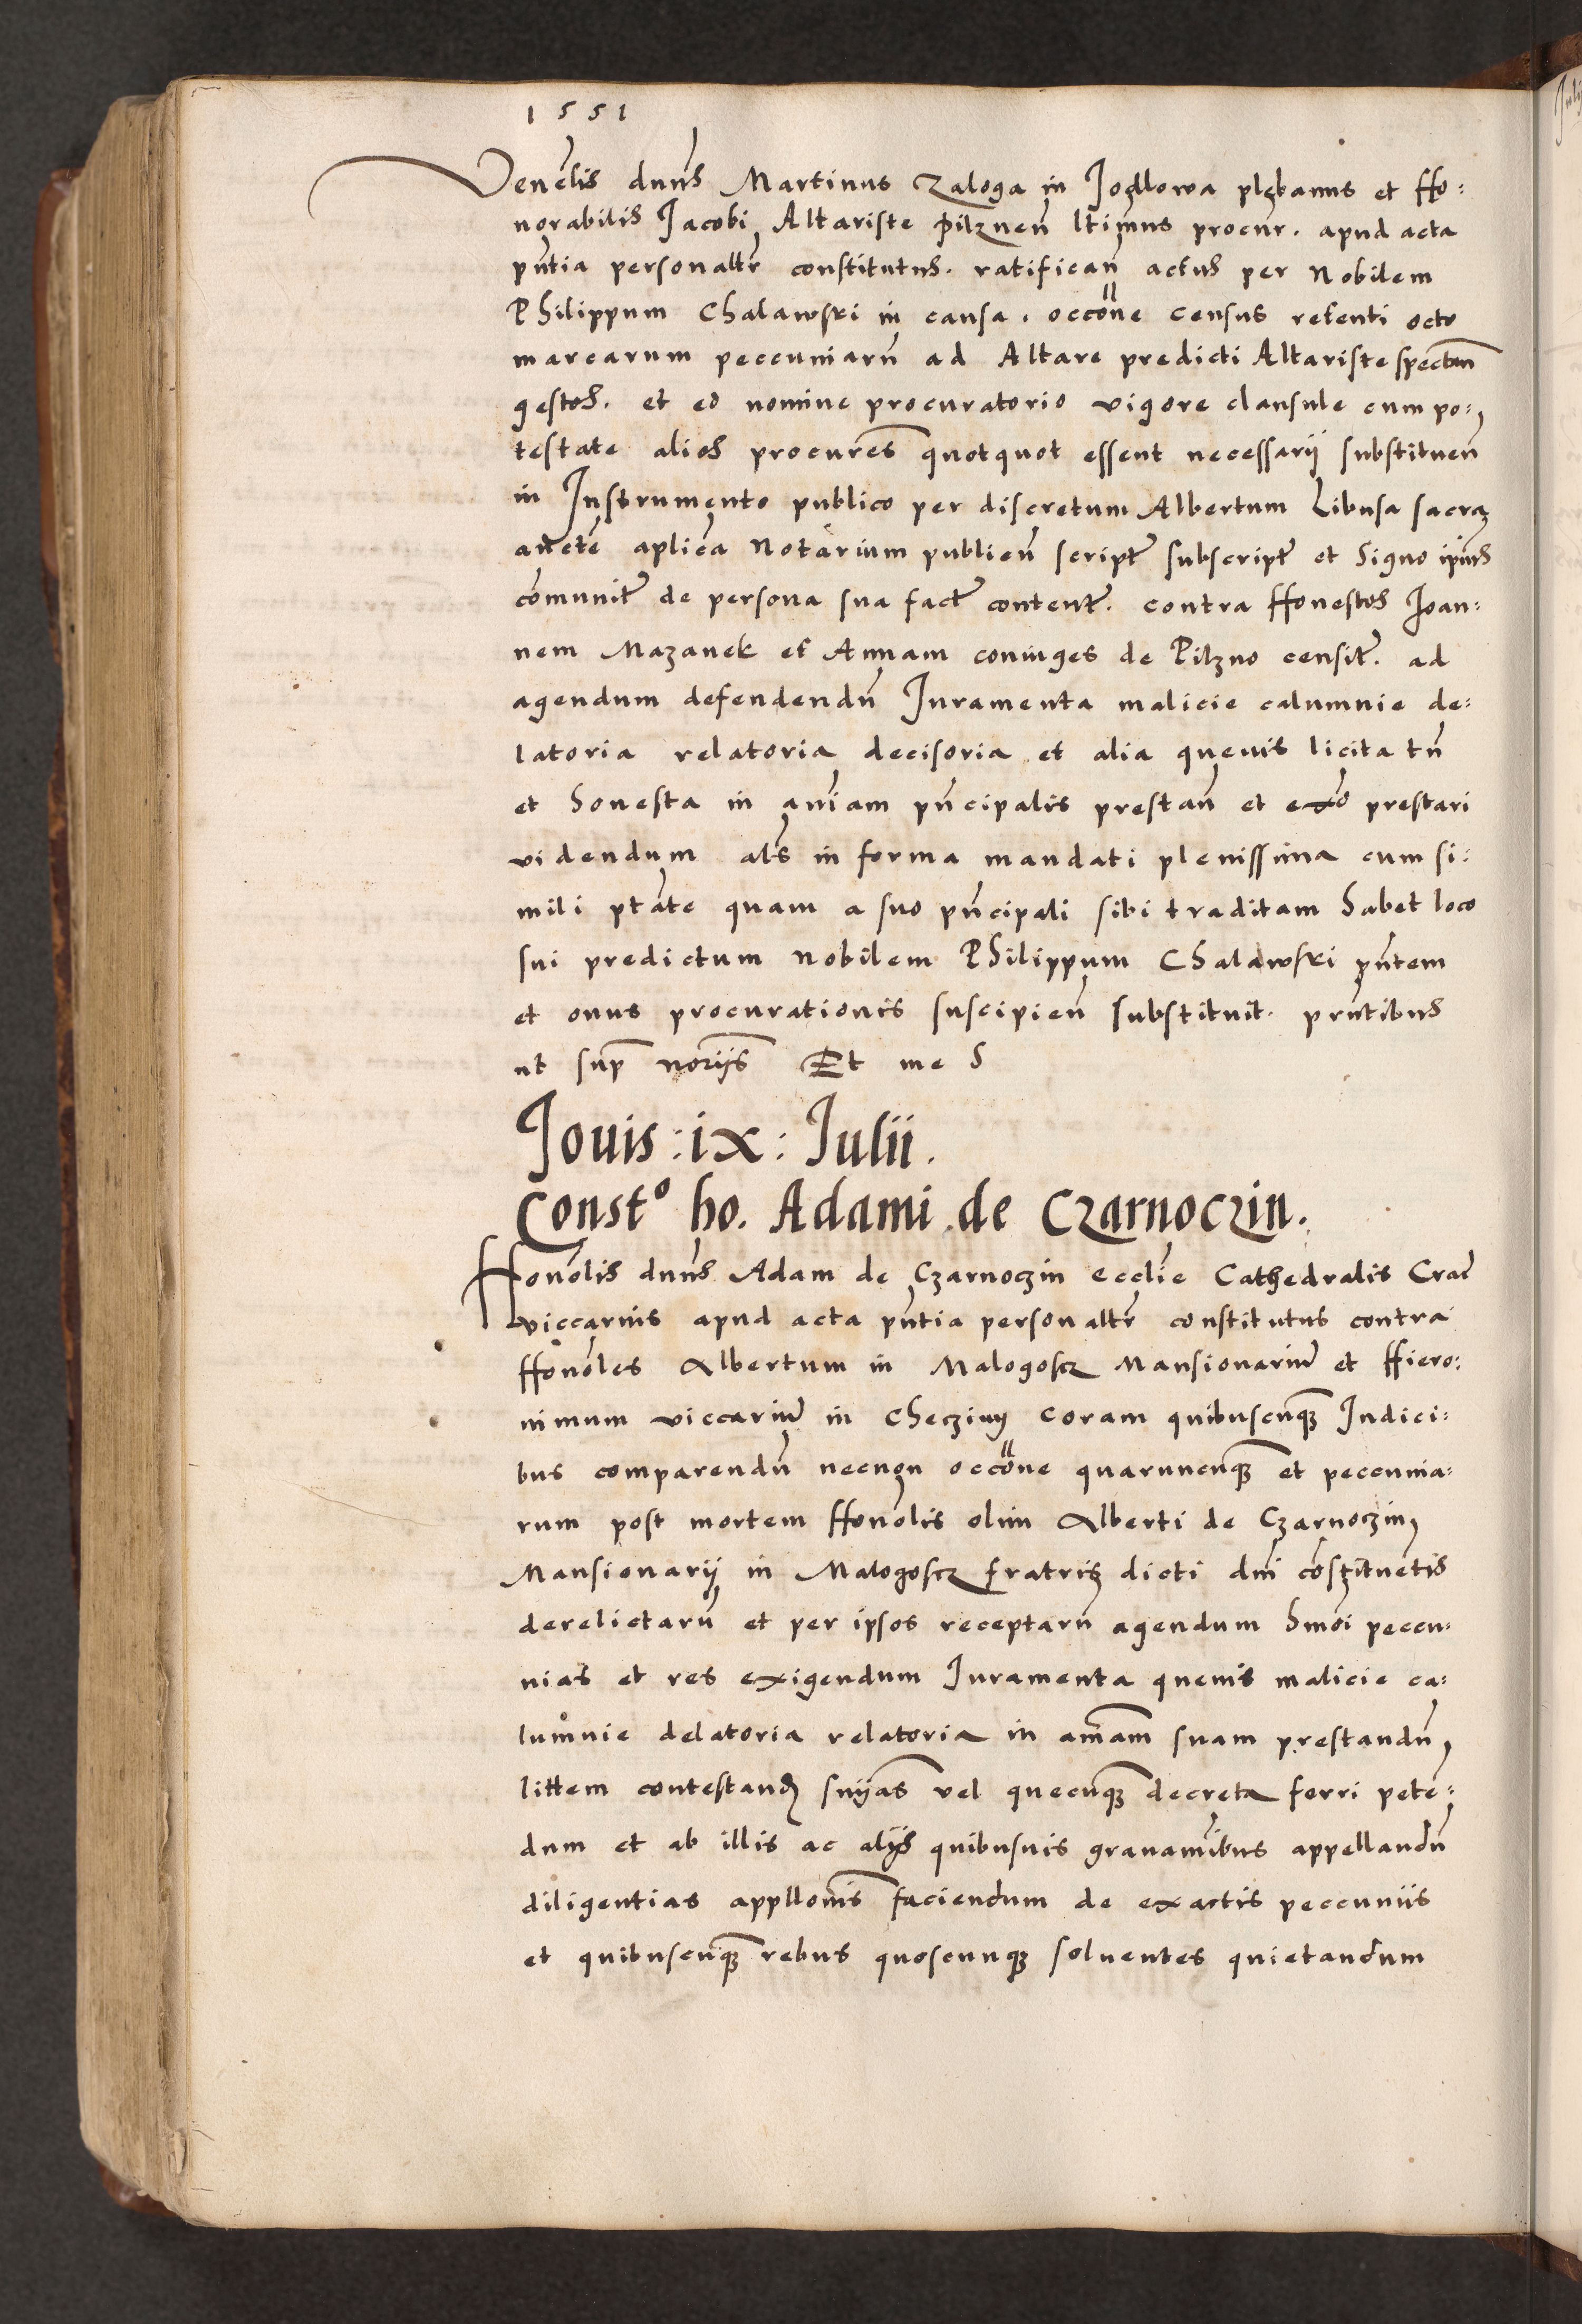 1551
Venēlis dnūs Martinus Zaloga in Jodlowa plebanus et Ho=
norabilis Jacobi Altariste Pilznen̄ ltimus procur. apud acta
pn̄tia personaltr̄ constitutus. ratifican̄ actus per Nobilem
Philippum Chalawski in causa. occōne census retenti octo
marcarum peccuniarū ad Altare predicti Altariste spectan̄
gestos. et eo nomine procuratorio vigore clausule cum po=
testate alios procures̄ quotquot essent necessarij substituen̄
in Instrumento publico per discretum Albertum Libusa sacra
auctēte aplica Notarium publicū script̄ subscript̄ et signo ipius
comunit̄ de persona sua fact̄ content̄. contra Honestos Joan=
nem Mazanek et Annam coniuges de Pilzno censit̄. ad
agendum defendendū Iuramenta malicie calumnie de=
latoria relatoria decisoria et alia quevis licita tn̄
et honesta in aniam pn̄cipalis prestan̄ et exo prestari
videndum als̄ in forma mandati plenissima cum si=
mili ptāte quam a suo pn̄cipali sibi traditam habet loco
sui predictum nobilem Philippum Chalawski pn̄tem
et onus procurationis suscipien̄ substituit. prn̄tibus
ut sup̄ norijs̄ Et me S
Jouis : ix : Julii.
Const° ho. Adami de Czarnoczin.
Honōlis dnūs Adam de Czarnoczin ecclīe Cathedralis Crac̄
viccarius apud acta pn̄tia personaltr̄ constitutus contra
Honōles Albertum in Malogoscz Mansionariū et Hiero=
nimum viccariū in Checziny coram quibuscunq̄ Iudici=
bus comparendū necnon occōne quarumcunq̄ et peccunia=
rum post mortem Honōlis olim Alberti de Czarnoczin
Mansionarij in Malogoscz fratris dicti dnī cōstituētis
derelictarū et per ipsos receptarū agendum hmōi peccu=
nias et res exigendum Iuramenta quevis malicie ca=
lumnie delatoria relatoria in am̄am suam prestandū
littem contestand snijas̄ vel quecunq̄ decreta ferri petē=
dum et ab illis ac alijs quibusuis grauamībus appellandū
diligentias appllonīs faciendum de exactis peccuniis
et quibuscunq̄ rebus quoscunq̄ soluentes quietandum